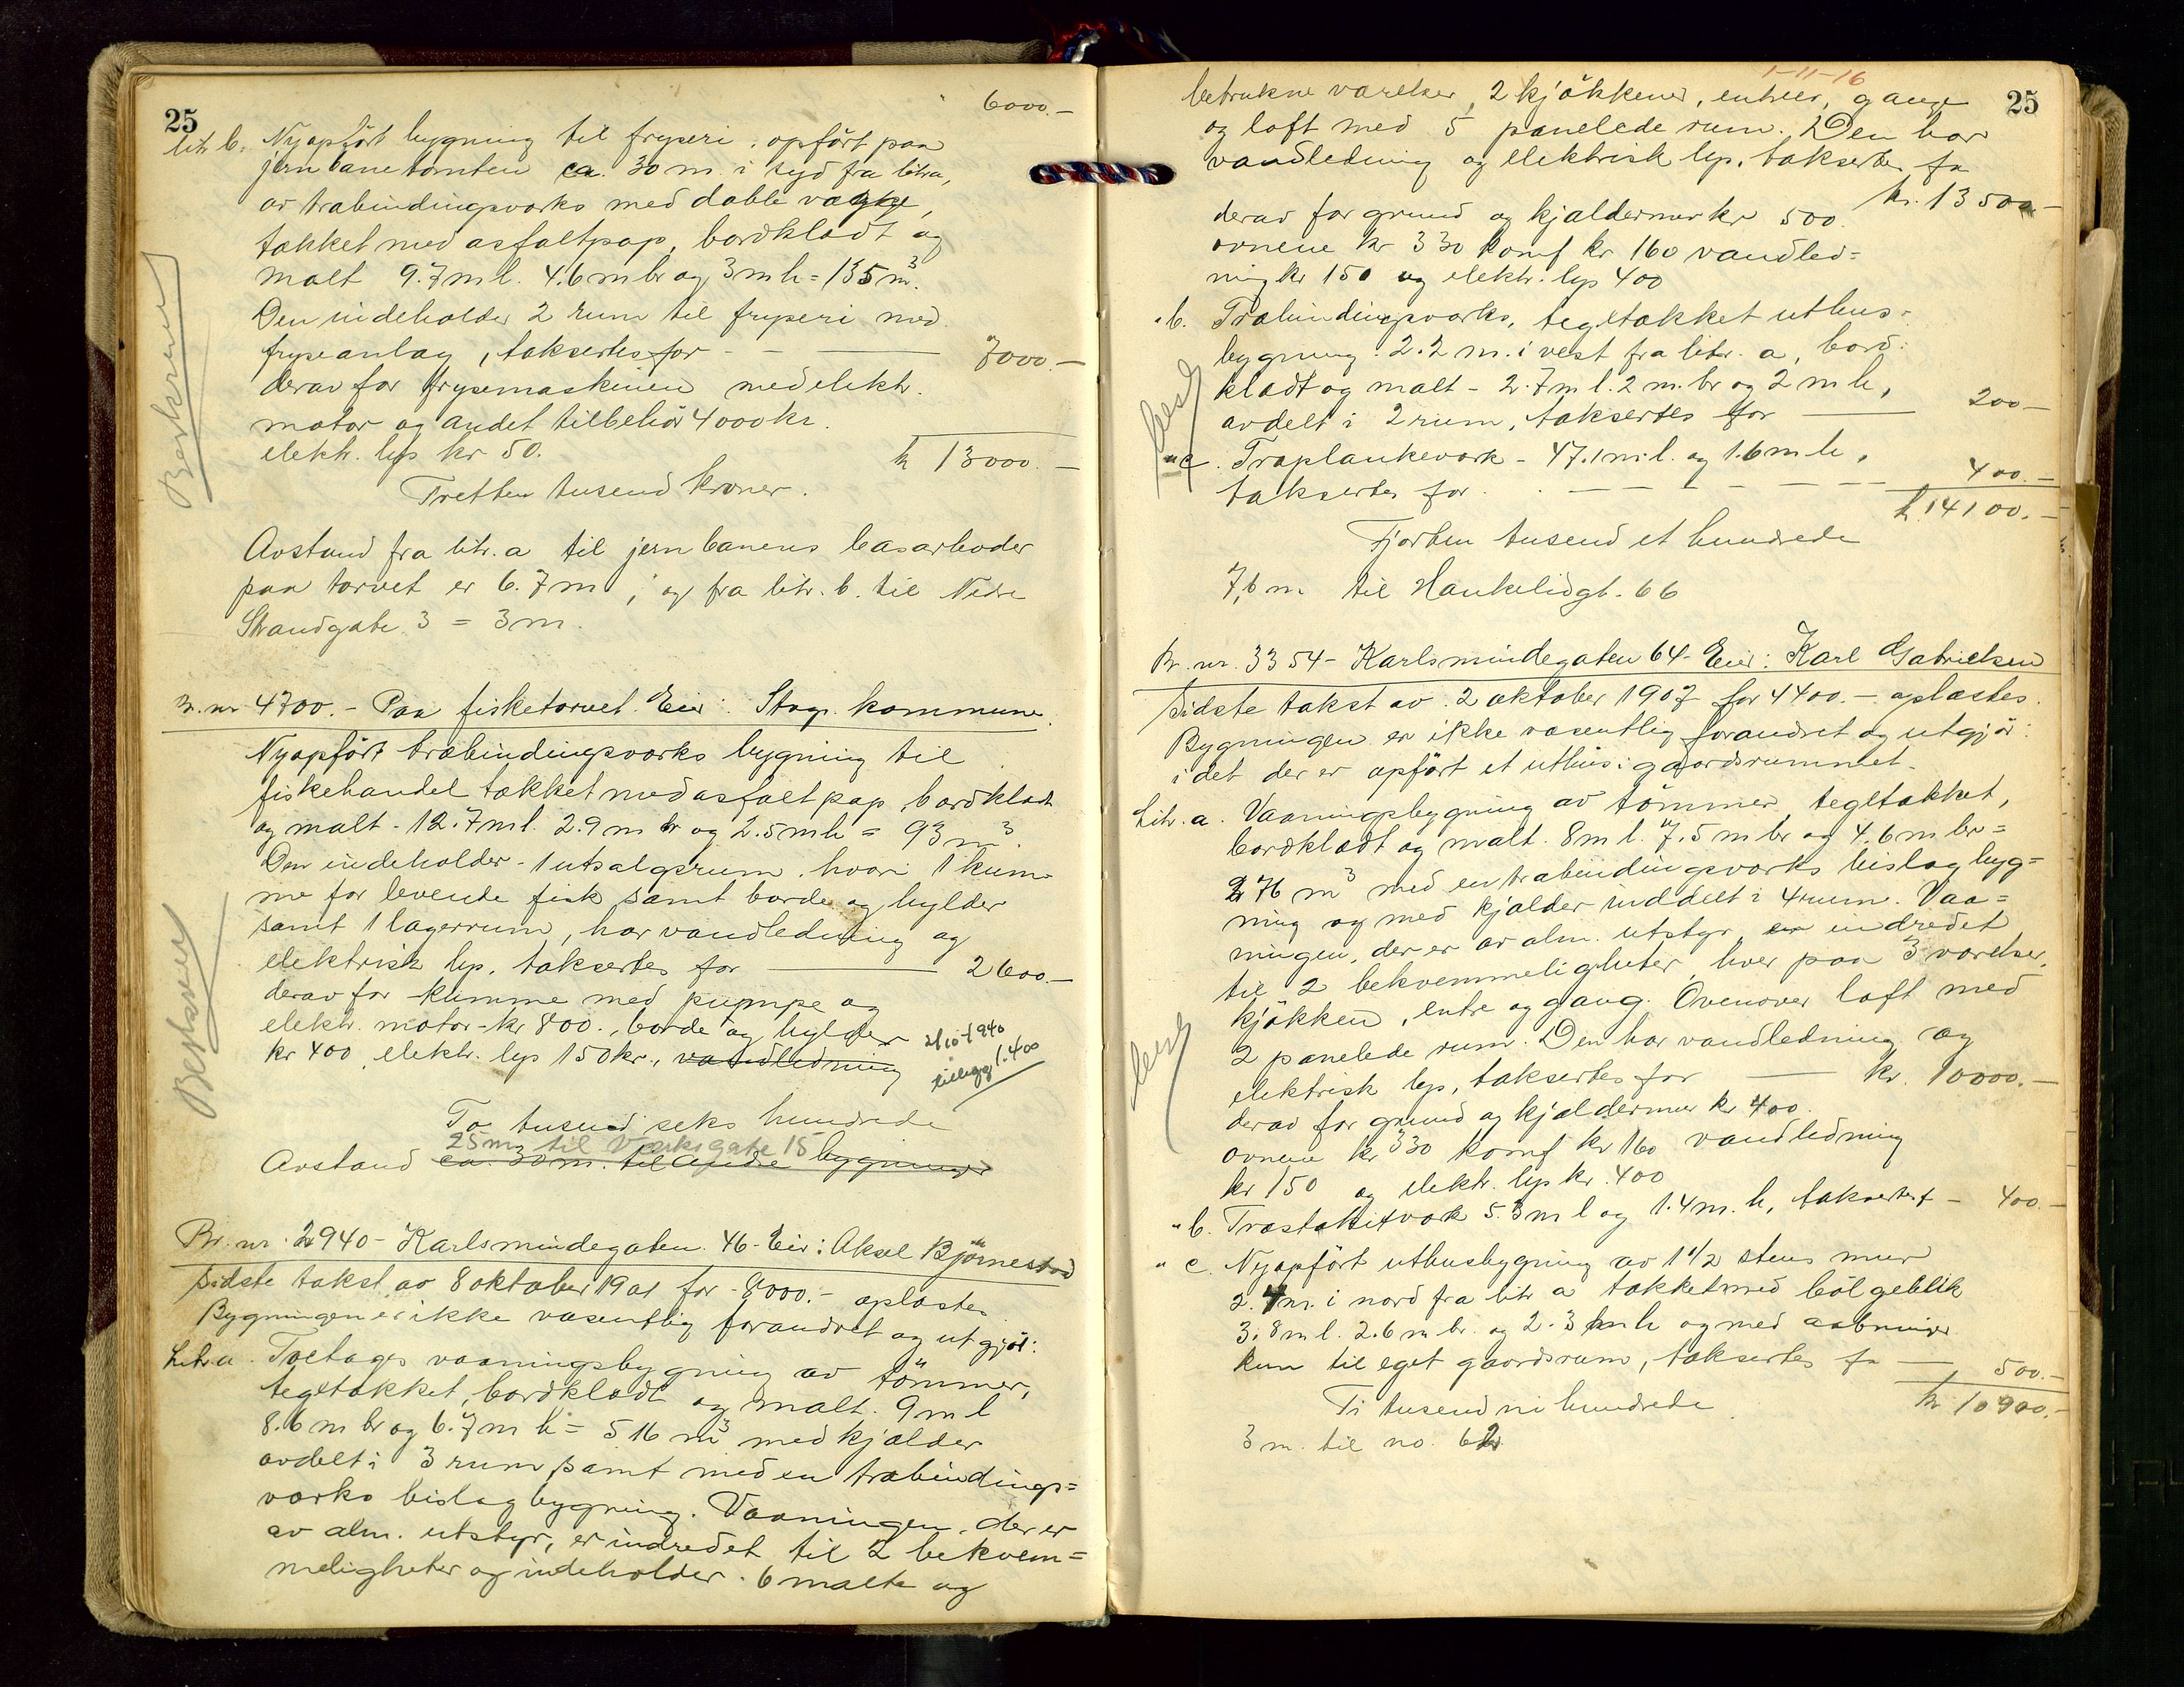 25
6000.-
litr b. Nyopført bygning til fryseri: opført paa
jernbanetomten ca. 30 m. i syd fra litra,
av træbindingsværks med doble vægge,
tækket med asfaltpap, bordklædt og
malt 9.7 m l. 4.6 m br og 3 m h = 135 m³.
Den indeholder 2 rum til fryseri med
fryseanlæg, taksertes for - - — 7000.-
derav for frysemaskinen med elektr.
motor og andet tilbehör 4000 kr.
elektr. lys kr 50.
kr 13000.-
Tretten tusend kroner.
Avstand fra litr. a til jernbanens basarboder
paa torvet er 6.7 m; og fra litr. b. til Nedre
Strandgate 3 = 3 m.
Br. nr 4700.- Paa fisketorvet. Eier: Stvgr. kommune.
Nyopført træbindingsværks bygning til
fiskehandel tækket med asfaltpap bordklædt
og malt - 12.7 m l. 2.9 m br og 2.5 m h = 93 m³.
Den indeholder - 1 utsalgsrum, hvori 1 kum-
me for levende fisk samt borde og hylder
samt 1 lagerrum, har vandledning og
elektrisk lys, taksertes for — 2600.-
derav for kumme med pumpe og
elektr. motor - kr 800., borde og hylder
kr 400, elektr. lys 150 kr., vandledning
2/10-1940
tillegg 1.400
To tusend seks hundrede
25 m. til Verksgate 15
Avstand ca. 30 m. til andre bygninger
Br. nr. 2940 - Karlsmindegaten 46 - Eier: Aksel Björnestad
Sidste takst av 8 oktober 1901 for - 8000.- oplæstes
Bygningen er ikke væsentlig forandret og utgjör:
Litr. a. Toetages vaaningsbygning av tömmer,
tegltækket, bordklædt og malt. 9 m l
8.6 m br og 6.7 m h = 516 m³ med kjælder
avdelt i 3 rum samt med en træbindings=
værks bislagbygning. Vaaningen, der er
av alm. utstyr, er indredet til 2 bekvem=
meligheter og indeholder - 6 malte og
Beskrevet
Beskrevet
1-11-16
25
betrukne værelser, 2 kjökkener, entreer, gange
og loft med 5 panelede rum. Den har
vandledning og elektrisk lys, taksertes for
kr. 13500.-
derav for grund og kjældermur kr 500.
ovnene kr 330 komf kr 160 vandled=
ning kr 150 og elektr. lys 400
" b. Træbindingsværks, tegltækket uthus-
bygning: 2.2 m. i vest fra litr. a, bord-
klædt og malt - 2.7 m l. 2 m. br og 2 m h,
avdelt i 2 rum, taksertes for — 200.-
" c. Træplankeværk - 47.1 m. l. og 1.6 m h,
taksertes for - - - - - 400.-
kr. 14100.-
Fjorten tusend et hundrede
7,6 m til Haukelidgt. 66
Br. nr. 3354 - Karlsmindegaten 64 - Eier: Karl Gabrielsen
Sidste takst av 2 oktober 1907 for 4400.- oplæstes.
Bygningen er ikke væsentlig forandret og utgjör:
idet der er opført et uthus i gaardsrummet.
Litr. a. Vaaningsbygning av tömmer, tegltækket,
bordklædt og malt. 8 m l. 7.5 m br og 4.6 m br =
276 m³ med en træbindingsværks bislagbyg=
ning og med kjælder inddelt i 4 rum. Vaa=
ningen, der er av alm. utstyr er indredet
til 2 bekvemmeligheter, hver paa 3 værelser,
kjökken, entre og gang. Ovenover loft med
2 panelede rum. Den har vandledning og
elektrisk lys, taksertes for — kr. 10000.-
derav for grund og kjældermur kr 400.
ovnene kr 330 komf kr 160 vandledning
kr 150 og elektr. lys kr. 400
" b. Træstakitværk 5.3 m l og 1.4 m. h, taksertes f - 400.-
" c. Nyopført uthusbygning av 1 1/2 stens mur
2.4 m. i nord fra litr a tækket med bölgeblik
3.8 m l. 2.6 m br. og 2.3 m h og med aabninger
kun til eget gaardsrum, taksertes for — 500.-
kr 10900.-
Ti tusend ni hundrede
3 m. til no. 62